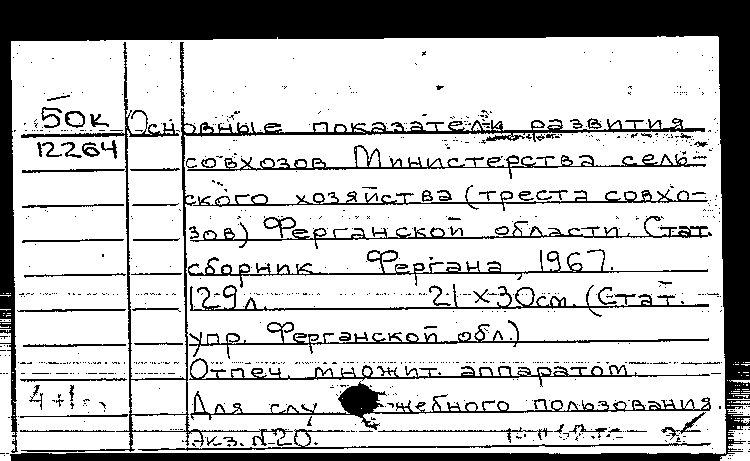 50к Основные показатели развития
12264 совхозов Министерства сель-
ского хозяйства (треста совхо-
зов) Ферганской области. Стат.
сборник. Фергана, 1967.
129 л. 21 х 30 см. (Стат.
упр. Ферганской обл.)
Отпеч. множит. аппаратом.
Для служебного пользования.
Экз. №20.